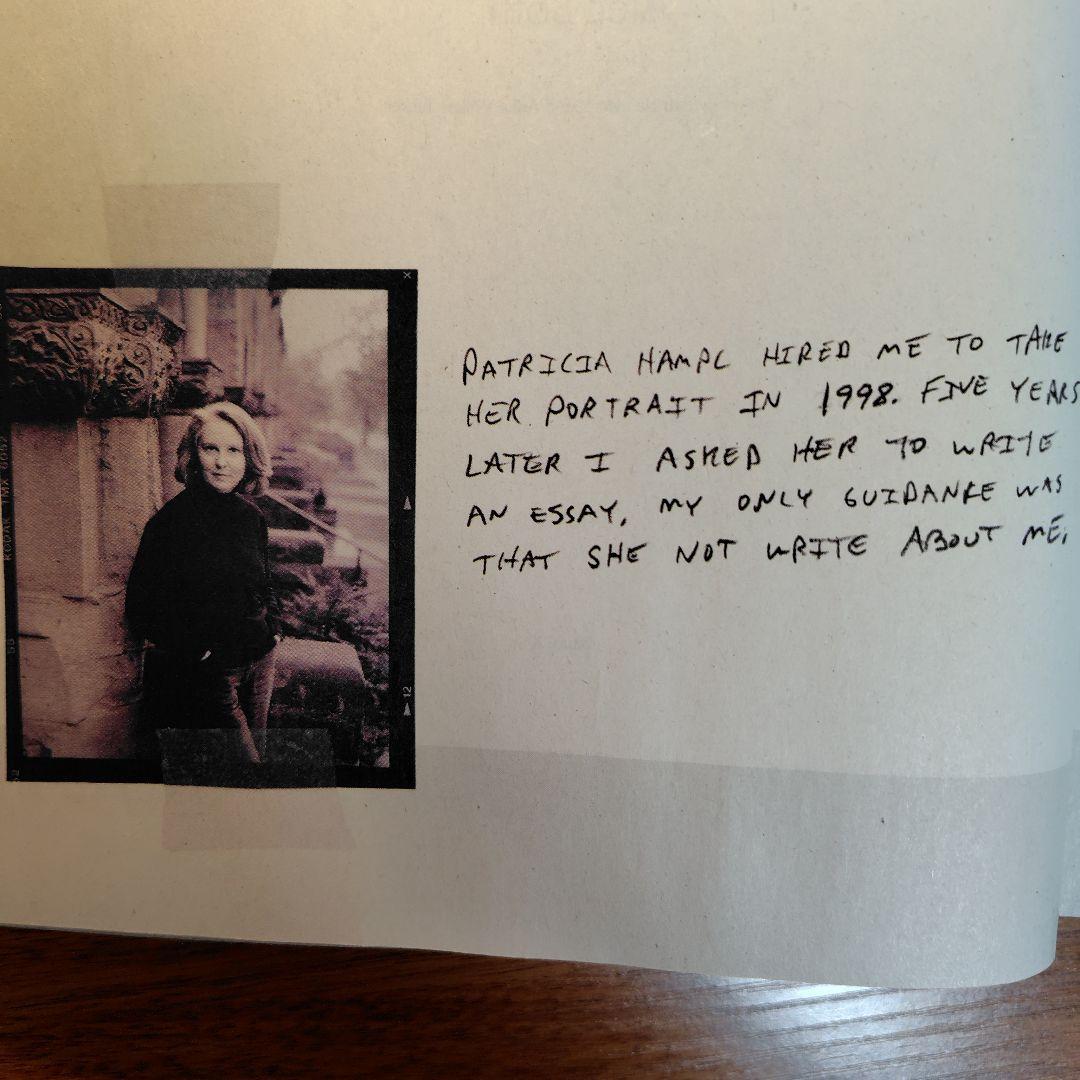 PATRICIA HAMPL HIRED ME TO TAKE
HER PORTRAIT IN 1998. FIVE YEARS
LATER I ASKED HER TO WRITE
AN ESSAY, MY ONLY GUIDANCE WAS
THAT SHE NOT WRITE ABOUT ME,
X
KODAK TMX 6052
12